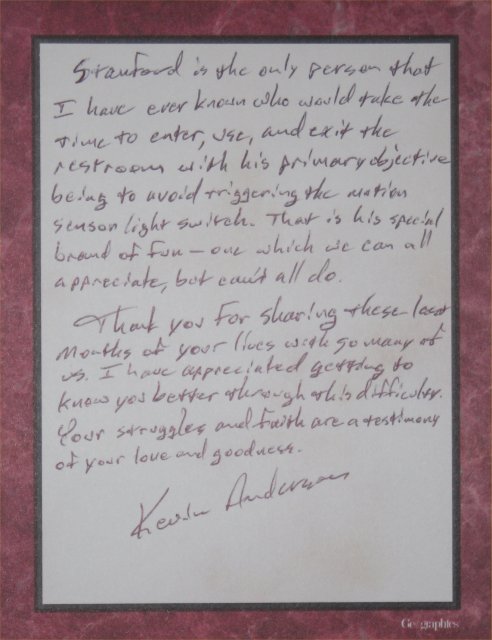 Stanford is the only person that
I have ever known who would take the
time to enter, use, and exit the
restroom with his primary objective
being to avoid triggering the motion
sensor light switch. That is his special
brand of fun - one which we can all
appreciate, but can't all do.
Thank you for sharing these last
months of your lives with so many of
us. I have appreciated getting to
know you better through this difficulty.
Your struggles and faith are a testimony
of your love and goodness.
Kevin Anderson
Geographics